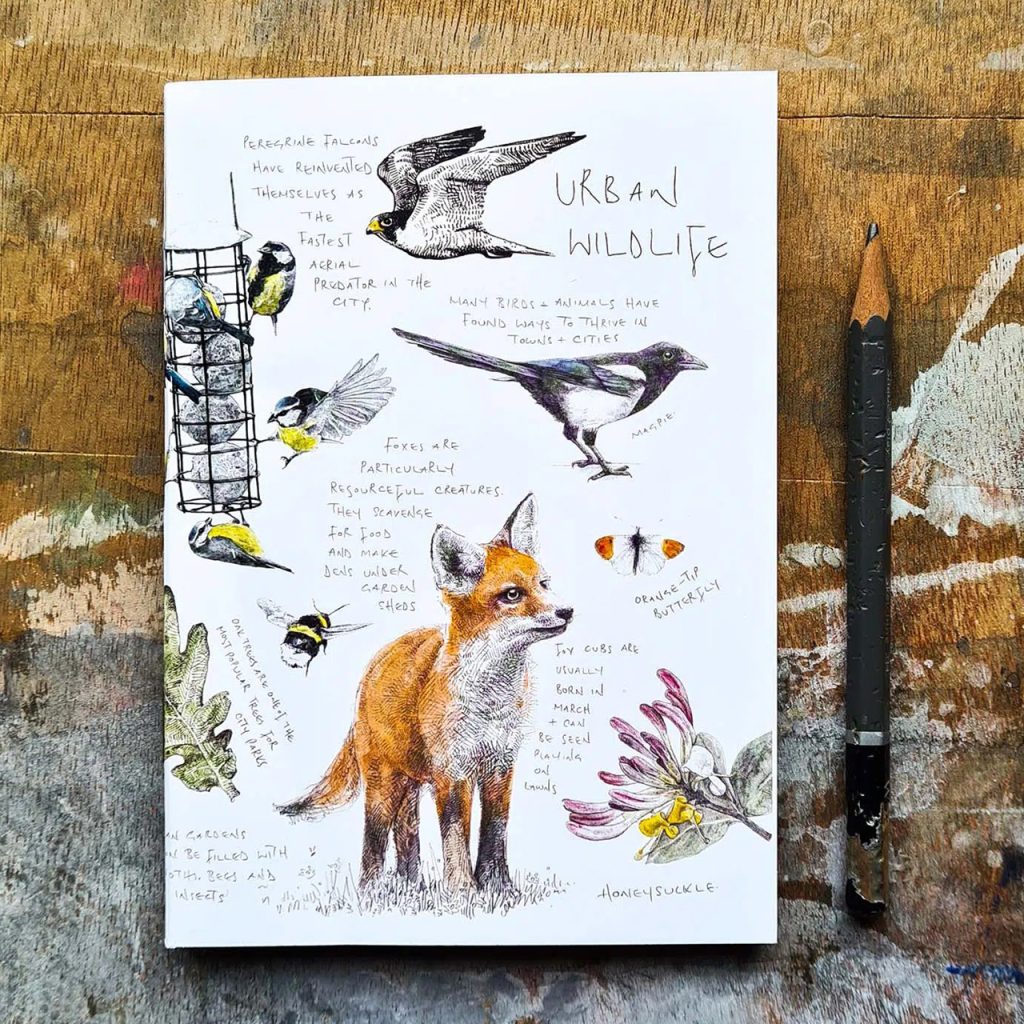 PEREGRINE FALCONS
HAVE REINVENTED
THEMSELVES AS
THE
FASTEST
AERIAL
PREDATOR IN THE
CITY.
URBAN
WILDLIFE
MANY BIRDS + ANIMALS HAVE
FOUND WAYS TO THRIVE IN
TOWNS + CITIES
MAGPIE.
FOXES ARE
PARTICULARLY
RESOURCEFUL CREATURES.
THEY SCAVENGE
FOR FOOD
AND MAKE
DENS UNDER
GARDEN
SHEDS
ORANGE-TIP
BUTTERFLY
OAK TREES ARE ONE OF THE
MOST POPULAR TREES FOR
CITY PARKS
FOX CUBS ARE
USUALLY
BORN IN
MARCH
+ CAN
BE SEEN
PLAYING
ON
LAWNS
AN GARDENS
N BE FILLED WITH
OTHS, BEES AND
INSECTS
HONEYSUCKLE.